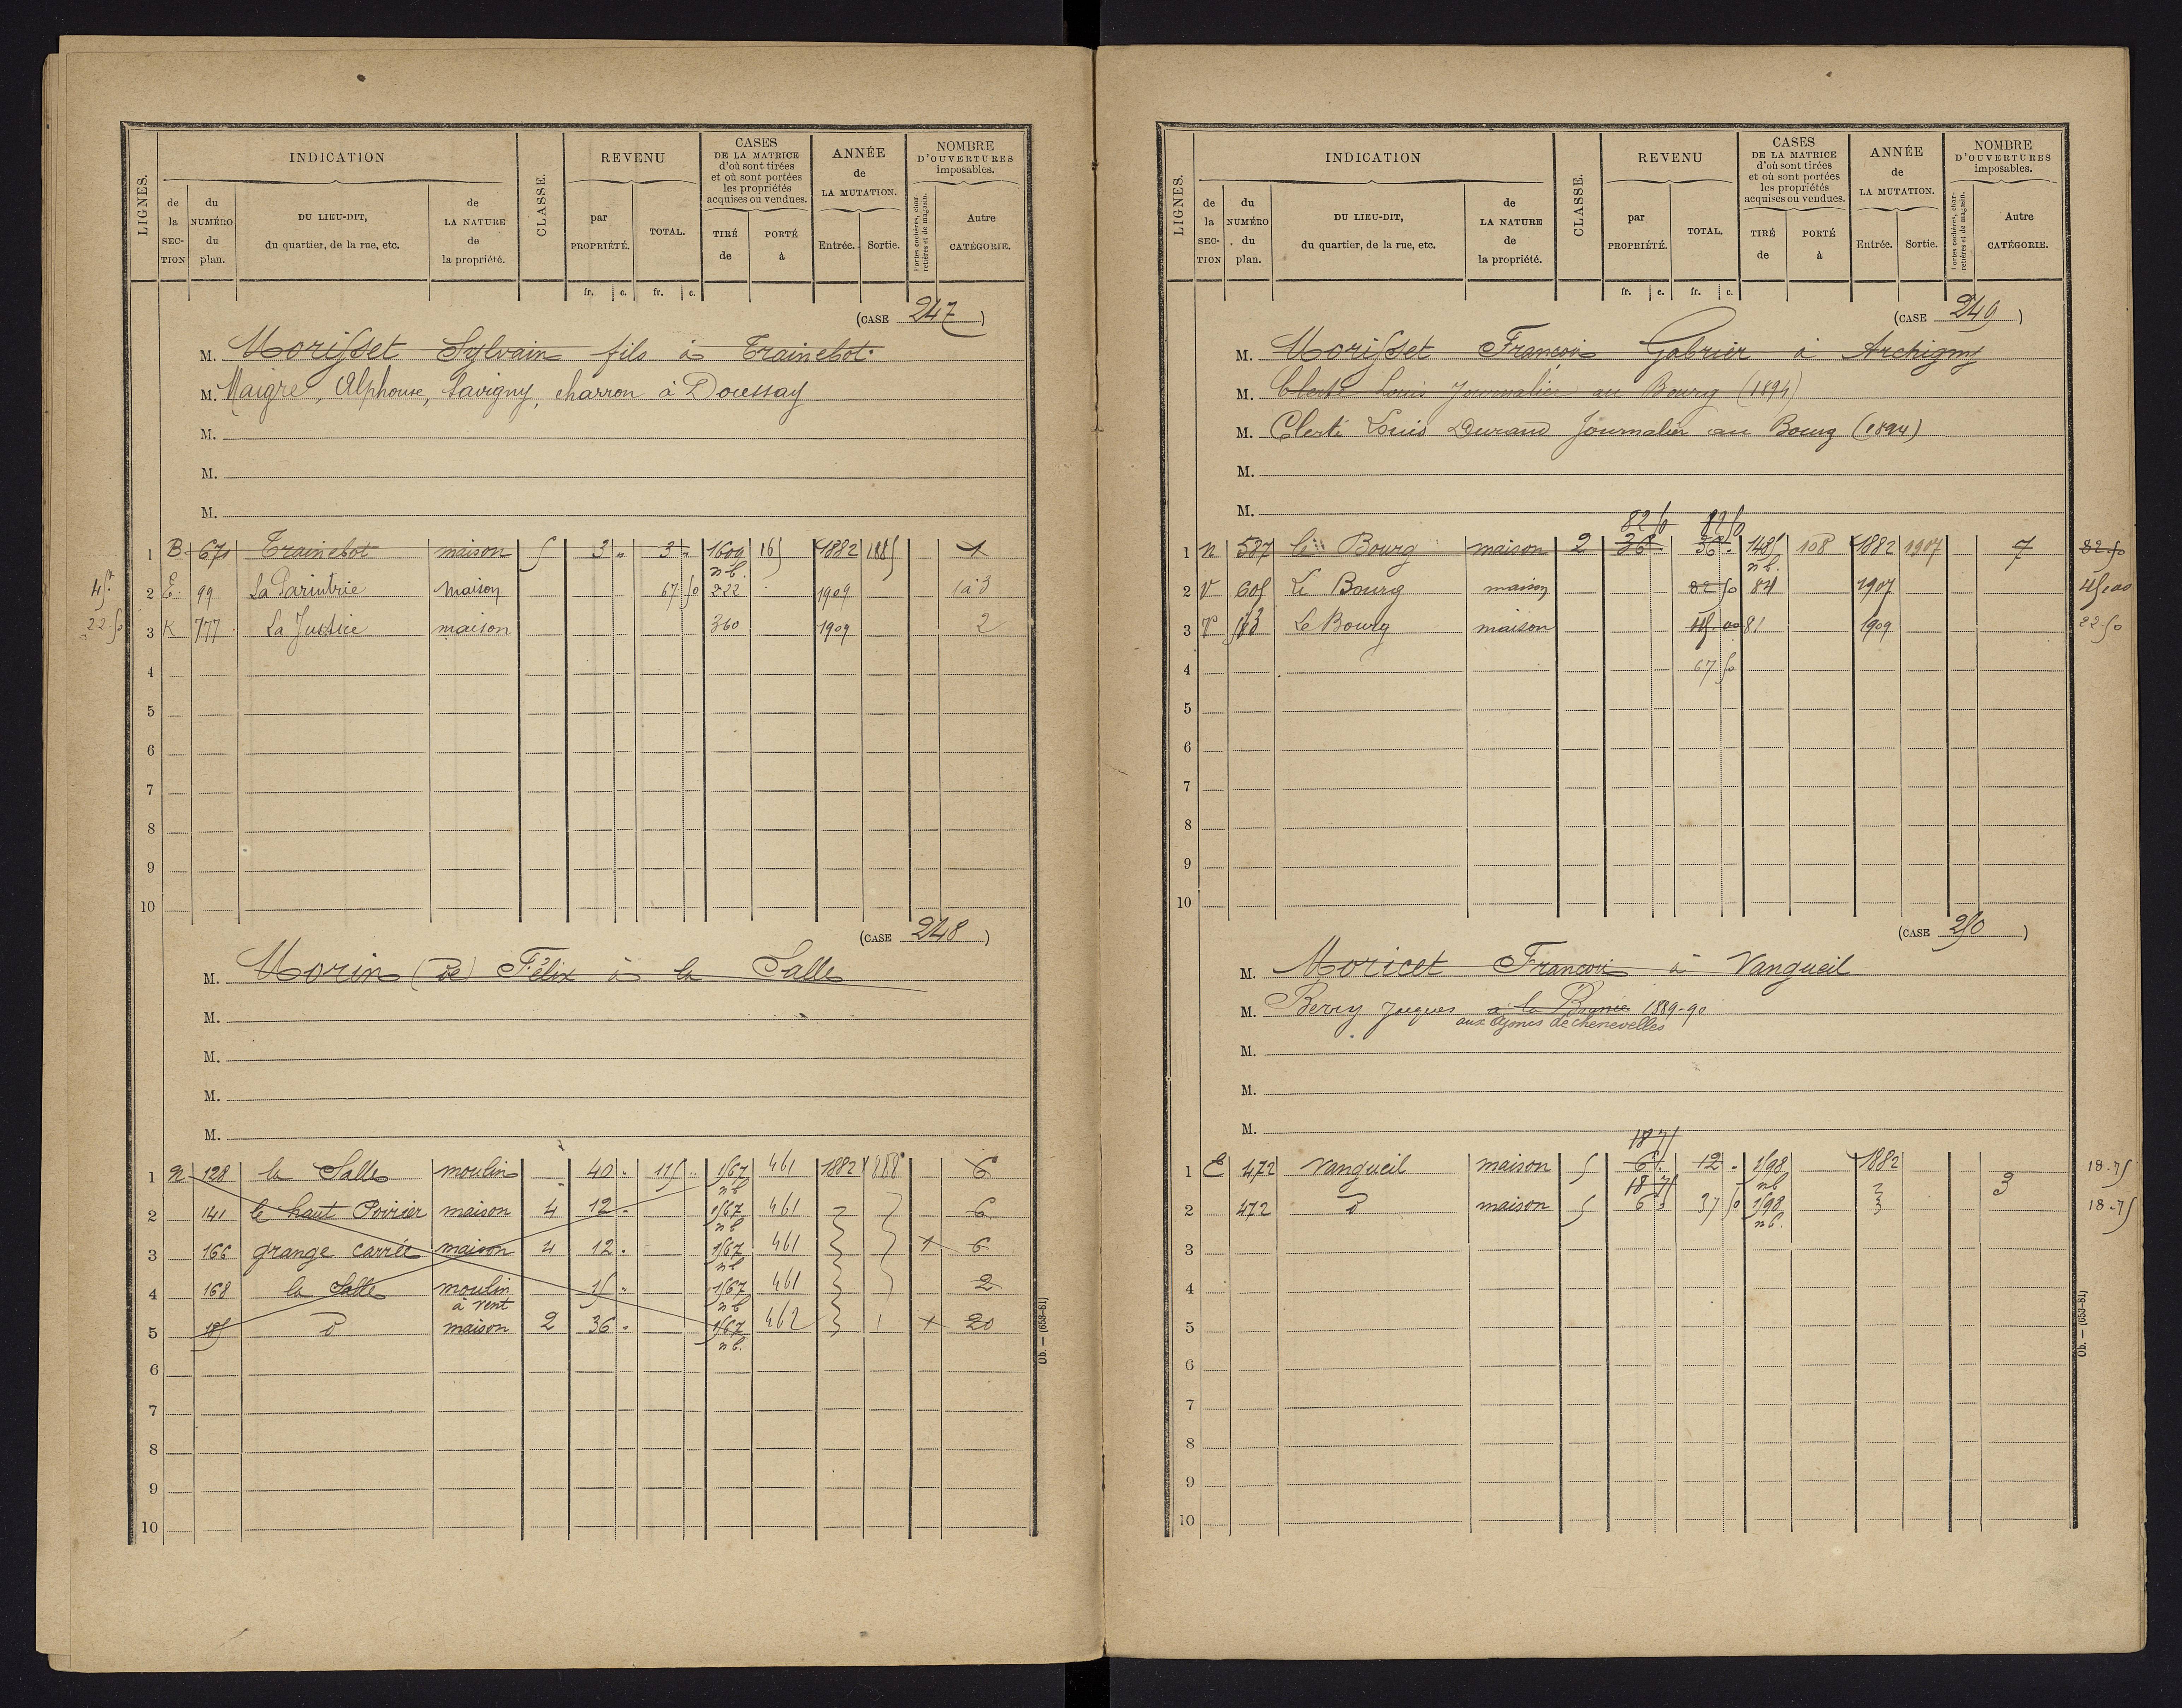 LIGNES. INDICATION CLASSE. REVENU CASES DE LA MATRICE d'où sont tirées et où sont portées les propriétés acquises ou vendues. ANNÉE de LA MUTATION. NOMBRE D'OUVERTURES imposables.
de la SECTION du NUMÉRO du plan. DU LIEU-DIT, du quartier, de la rue, etc. de LA NATURE de la propriété. par PROPRIÉTÉ. TOTAL. TIRÉ de PORTÉ à Entrée. Sortie. Portes cochères, charretières et de magasin. Autre CATÉGORIE.
fr. c. fr. c.
(CASE 247)
M. Morisset Sylvain fils à Trainebot
M. Maigre, Alphonse, Savigny, charron à Doussay
M.
M.
M.
1 B 671 Trainebot maison 5 3 " 3 " 1609 n b. 165 1882 1885 1
45. 2 E 99 maison 67 50 222 1909 1 à 3
22.50 3 K 777 La Justice maison 360 1909 2
4
5
6
7
8
9
10
(CASE 248)
M. Morin (de) Félix à la Salle
M.
M.
M.
M.
1 N 128 la Salle moulin " 40 " 115 " 1567 n b 461 1882 1888 6
2 141 le haut Poirier maison 4 12 " 1567 n b 461 6
3 166 grange carrée maison 4 12 " 1567 n b 461 1 6
4 168 la Salle moulin à vent 15 " 1567 n b 461 2
5 185 D maison 2 36 " 1567 n b. 462 1 20
6
7
8
9
10
Ob. — (653-81)
LIGNES. INDICATION CLASSE. REVENU CASES DE LA MATRICE d'où sont tirées et où sont portées les propriétés acquises ou vendues. ANNÉE de LA MUTATION. NOMBRE D'OUVERTURES imposables.
de la SECTION du NUMÉRO du plan. DU LIEU-DIT, du quartier, de la rue, etc. de LA NATURE de la propriété. par PROPRIÉTÉ. TOTAL. TIRÉ de PORTÉ à Entrée. Sortie. Portes cochères, charretières et de magasin. Autre CATÉGORIE.
fr. c. fr. c.
(CASE 249)
M. Morisset François Gabriel à Archigny
M. Clerté Louis Journalier au Bourg (1894)
M. Clerté Louis Durand Journalier au Bourg (1894)
M.
M.
82 50 82 50
1 N 587 le Bourg maison 2 36 36 " 1485 n b. 108 1882 1907 7 82.50
2 V 605 Le Bourg maison 82 50 84 1907 45.00
3 583 Le Bourg maison 45.00 81 1909 22 50
4 67 50
5
6
7
8
9
10
(CASE 250)
M. Moricet François à Vangueil
M. Berry Jacques à la 1889-90
aux Ajoncs de chenevelles
M.
M.
M.
18 75
1 E 472 Vangueil maison 5 6 " 12 " 1598 n b 1882 3 18.75
18 75
2 472 D maison 5 6 " 37 50 1598 n b. 18.75
3
4
5
6
7
8
9
10
Ob. — (653-81)